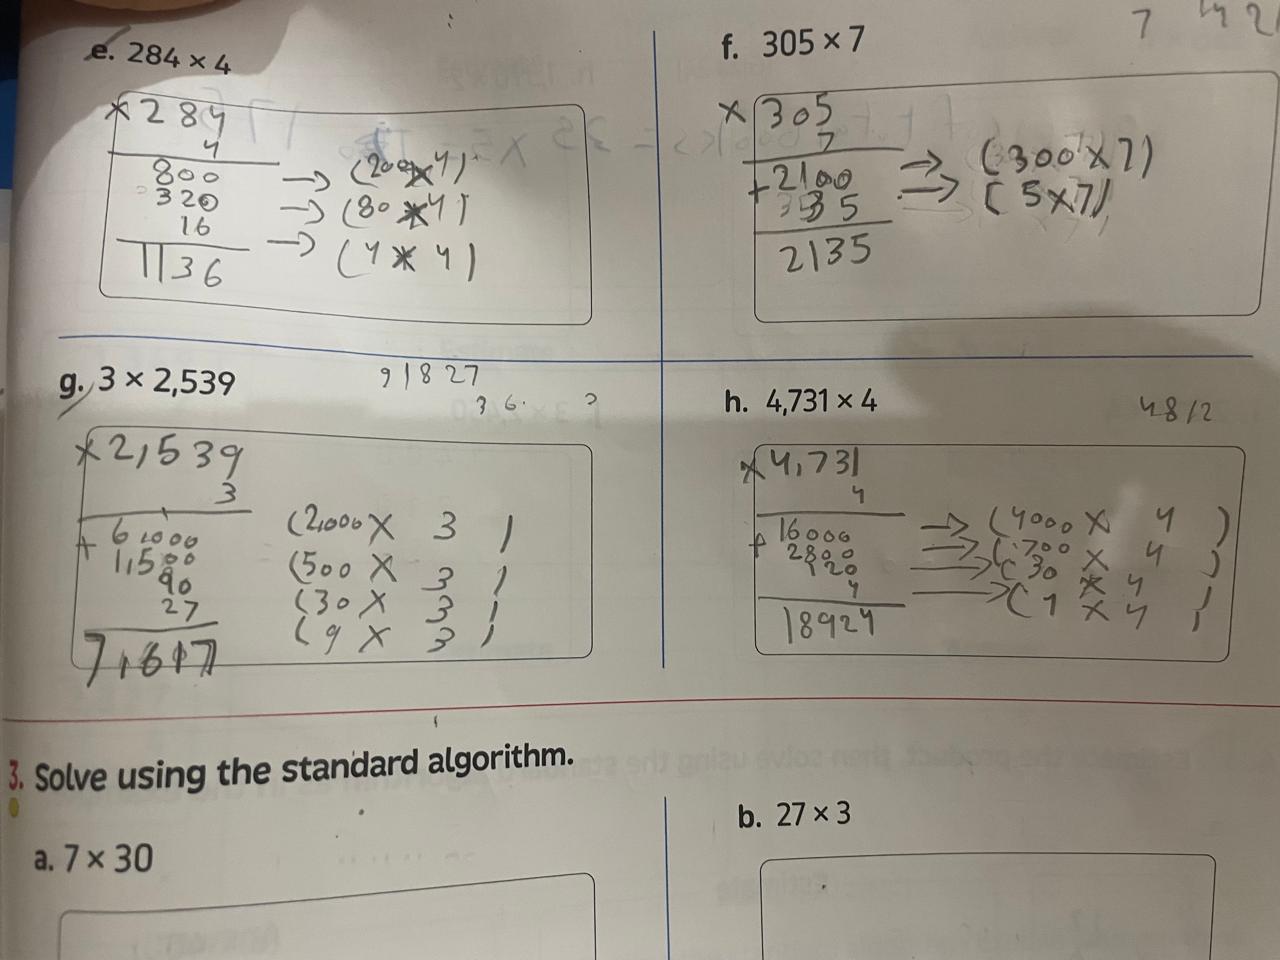 7 4 2
e. 284 × 4
× 284
4
800 → (200 × 4)
320 → (80 × 4)
16 → (4 × 4)
1136
f. 305 × 7
× 305
7
+ 2100 → (300 × 7)
35 → (5 × 7)
2135
g. 3 × 2,539
9 18 27
3 6. ?
× 2,539
3
+ 6,000 (2,000 × 3)
1,500 (500 × 3)
90 (30 × 3)
27 (9 × 3)
7,617
h. 4,731 × 4
4 8 12
× 4,731
4
+ 16000 → (4000 × 4)
2800 → (700 × 4)
120 → (30 × 4)
4 → (1 × 4)
18924
3. Solve using the standard algorithm.
a. 7 × 30
b. 27 × 3